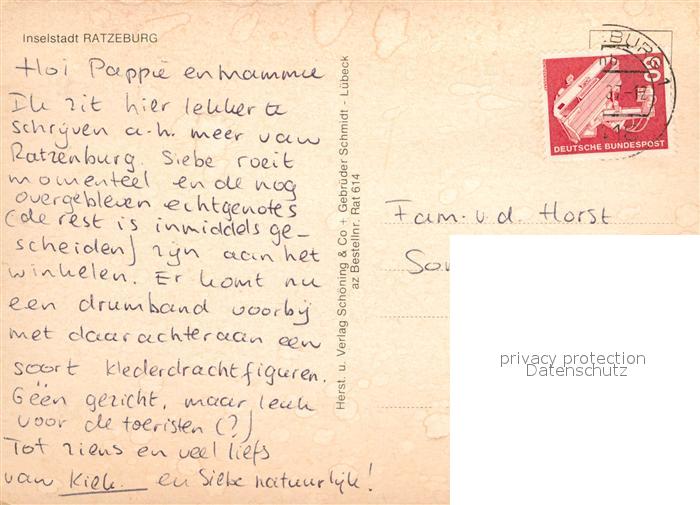 Inselstadt RATZEBURG
Hoi Pappie en Mammie
Ik zit hier lekker te
schrijven a.h. meer van
Ratzenburg. Siebe roeit
momenteel en de nog
overgebleven echtgenotes
(de rest is inmiddels ge-
scheiden) zijn aan het
winkelen. Er komt nu
een drumband voorbij
met daarachteraan een
soort klederdrachtfiguren.
Géén gezicht, maar leuk
voor de toeristen (?)
Tot ziens en veel liefs
van Kiek en Siebe natuurlijk!
Herst. u. Verlag Schöning & Co + Gebrüder Schmidt - Lübeck
az Bestellnr. Rat 614
DEUTSCHE BUNDESPOST
Fam. v.d. Horst
privacy protection
Datenschutz